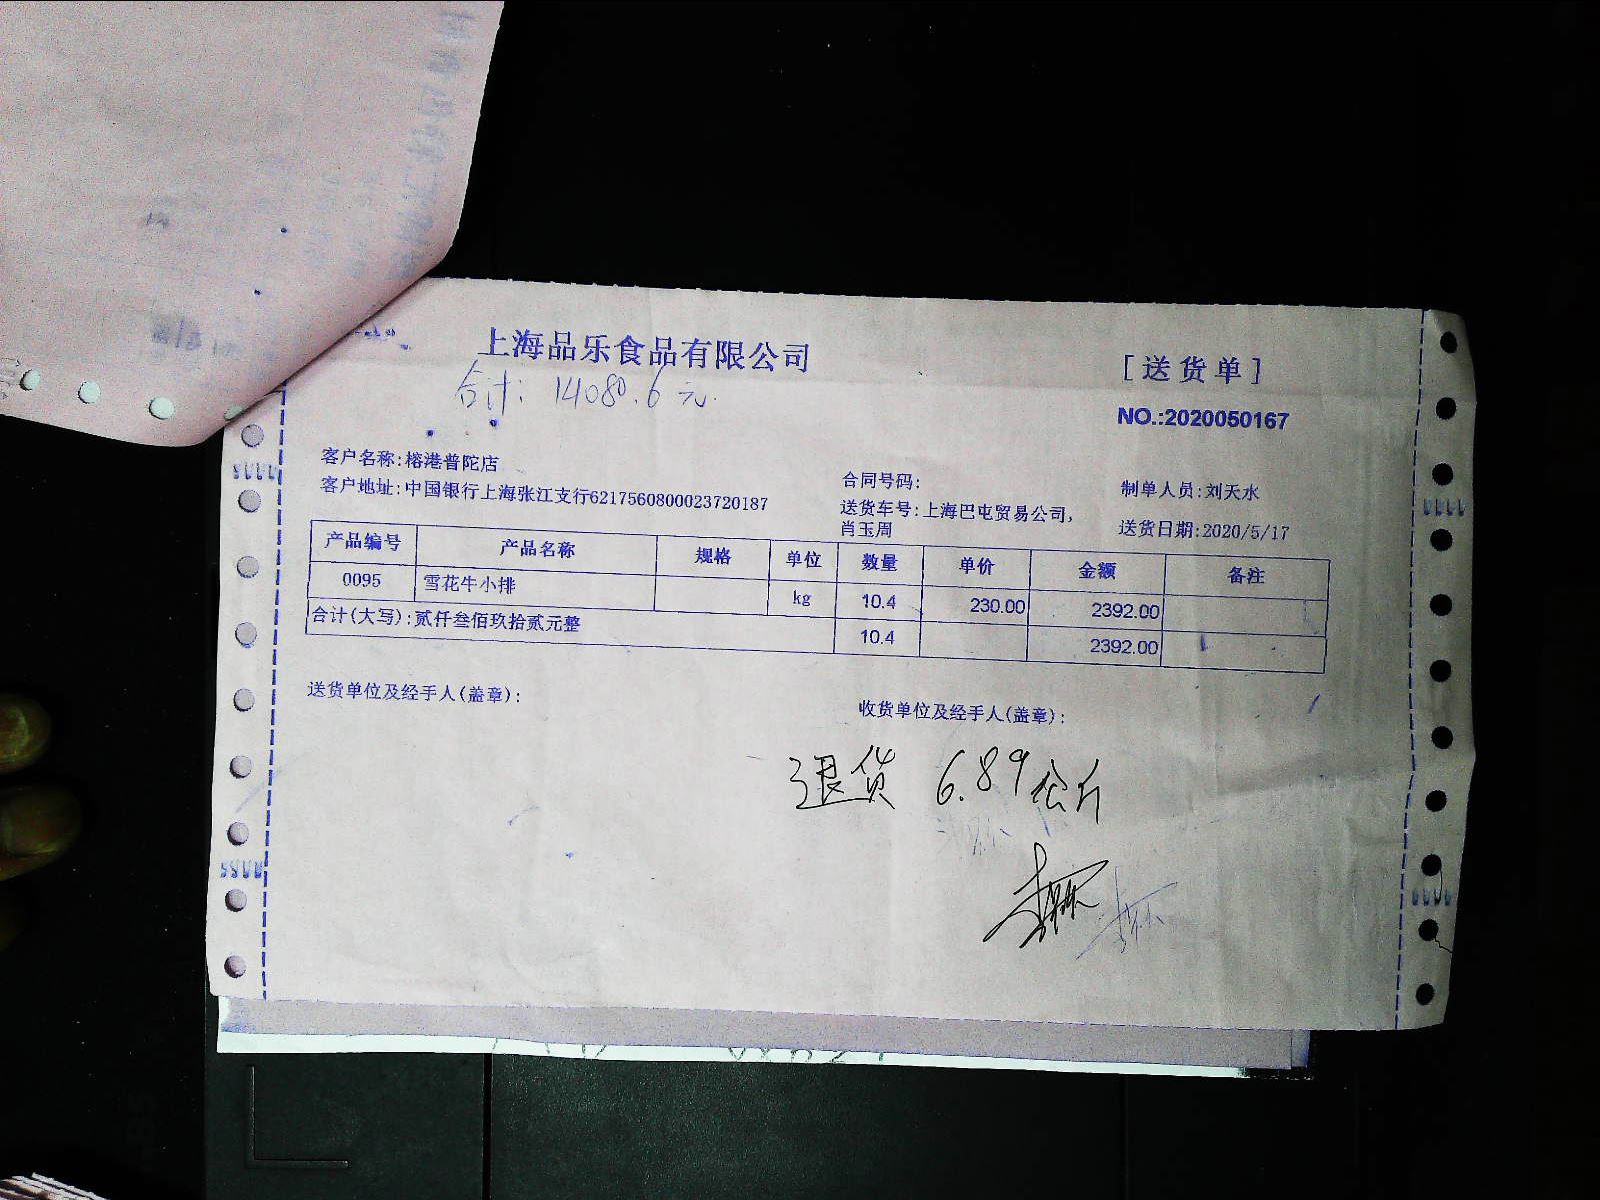 上海品乐食品有限公司
[送货单]
合计: 14080.6元.
NO.:2020050167
客户名称:榕港普陀店
客户地址:中国银行上海张江支行6217560800023720187
合同号码:
送货车号:上海巴屯贸易公司,
肖玉周
制单人员:刘天水
送货日期:2020/5/17
产品编号 产品名称 规格 单位 数量 单价 金额 备注
0095 雪花牛小排 kg 10.4 230.00 2392.00
合计(大写):贰仟叁佰玖拾贰元整 10.4 2392.00
送货单位及经手人(盖章):
收货单位及经手人(盖章):
退货 6.89公斤